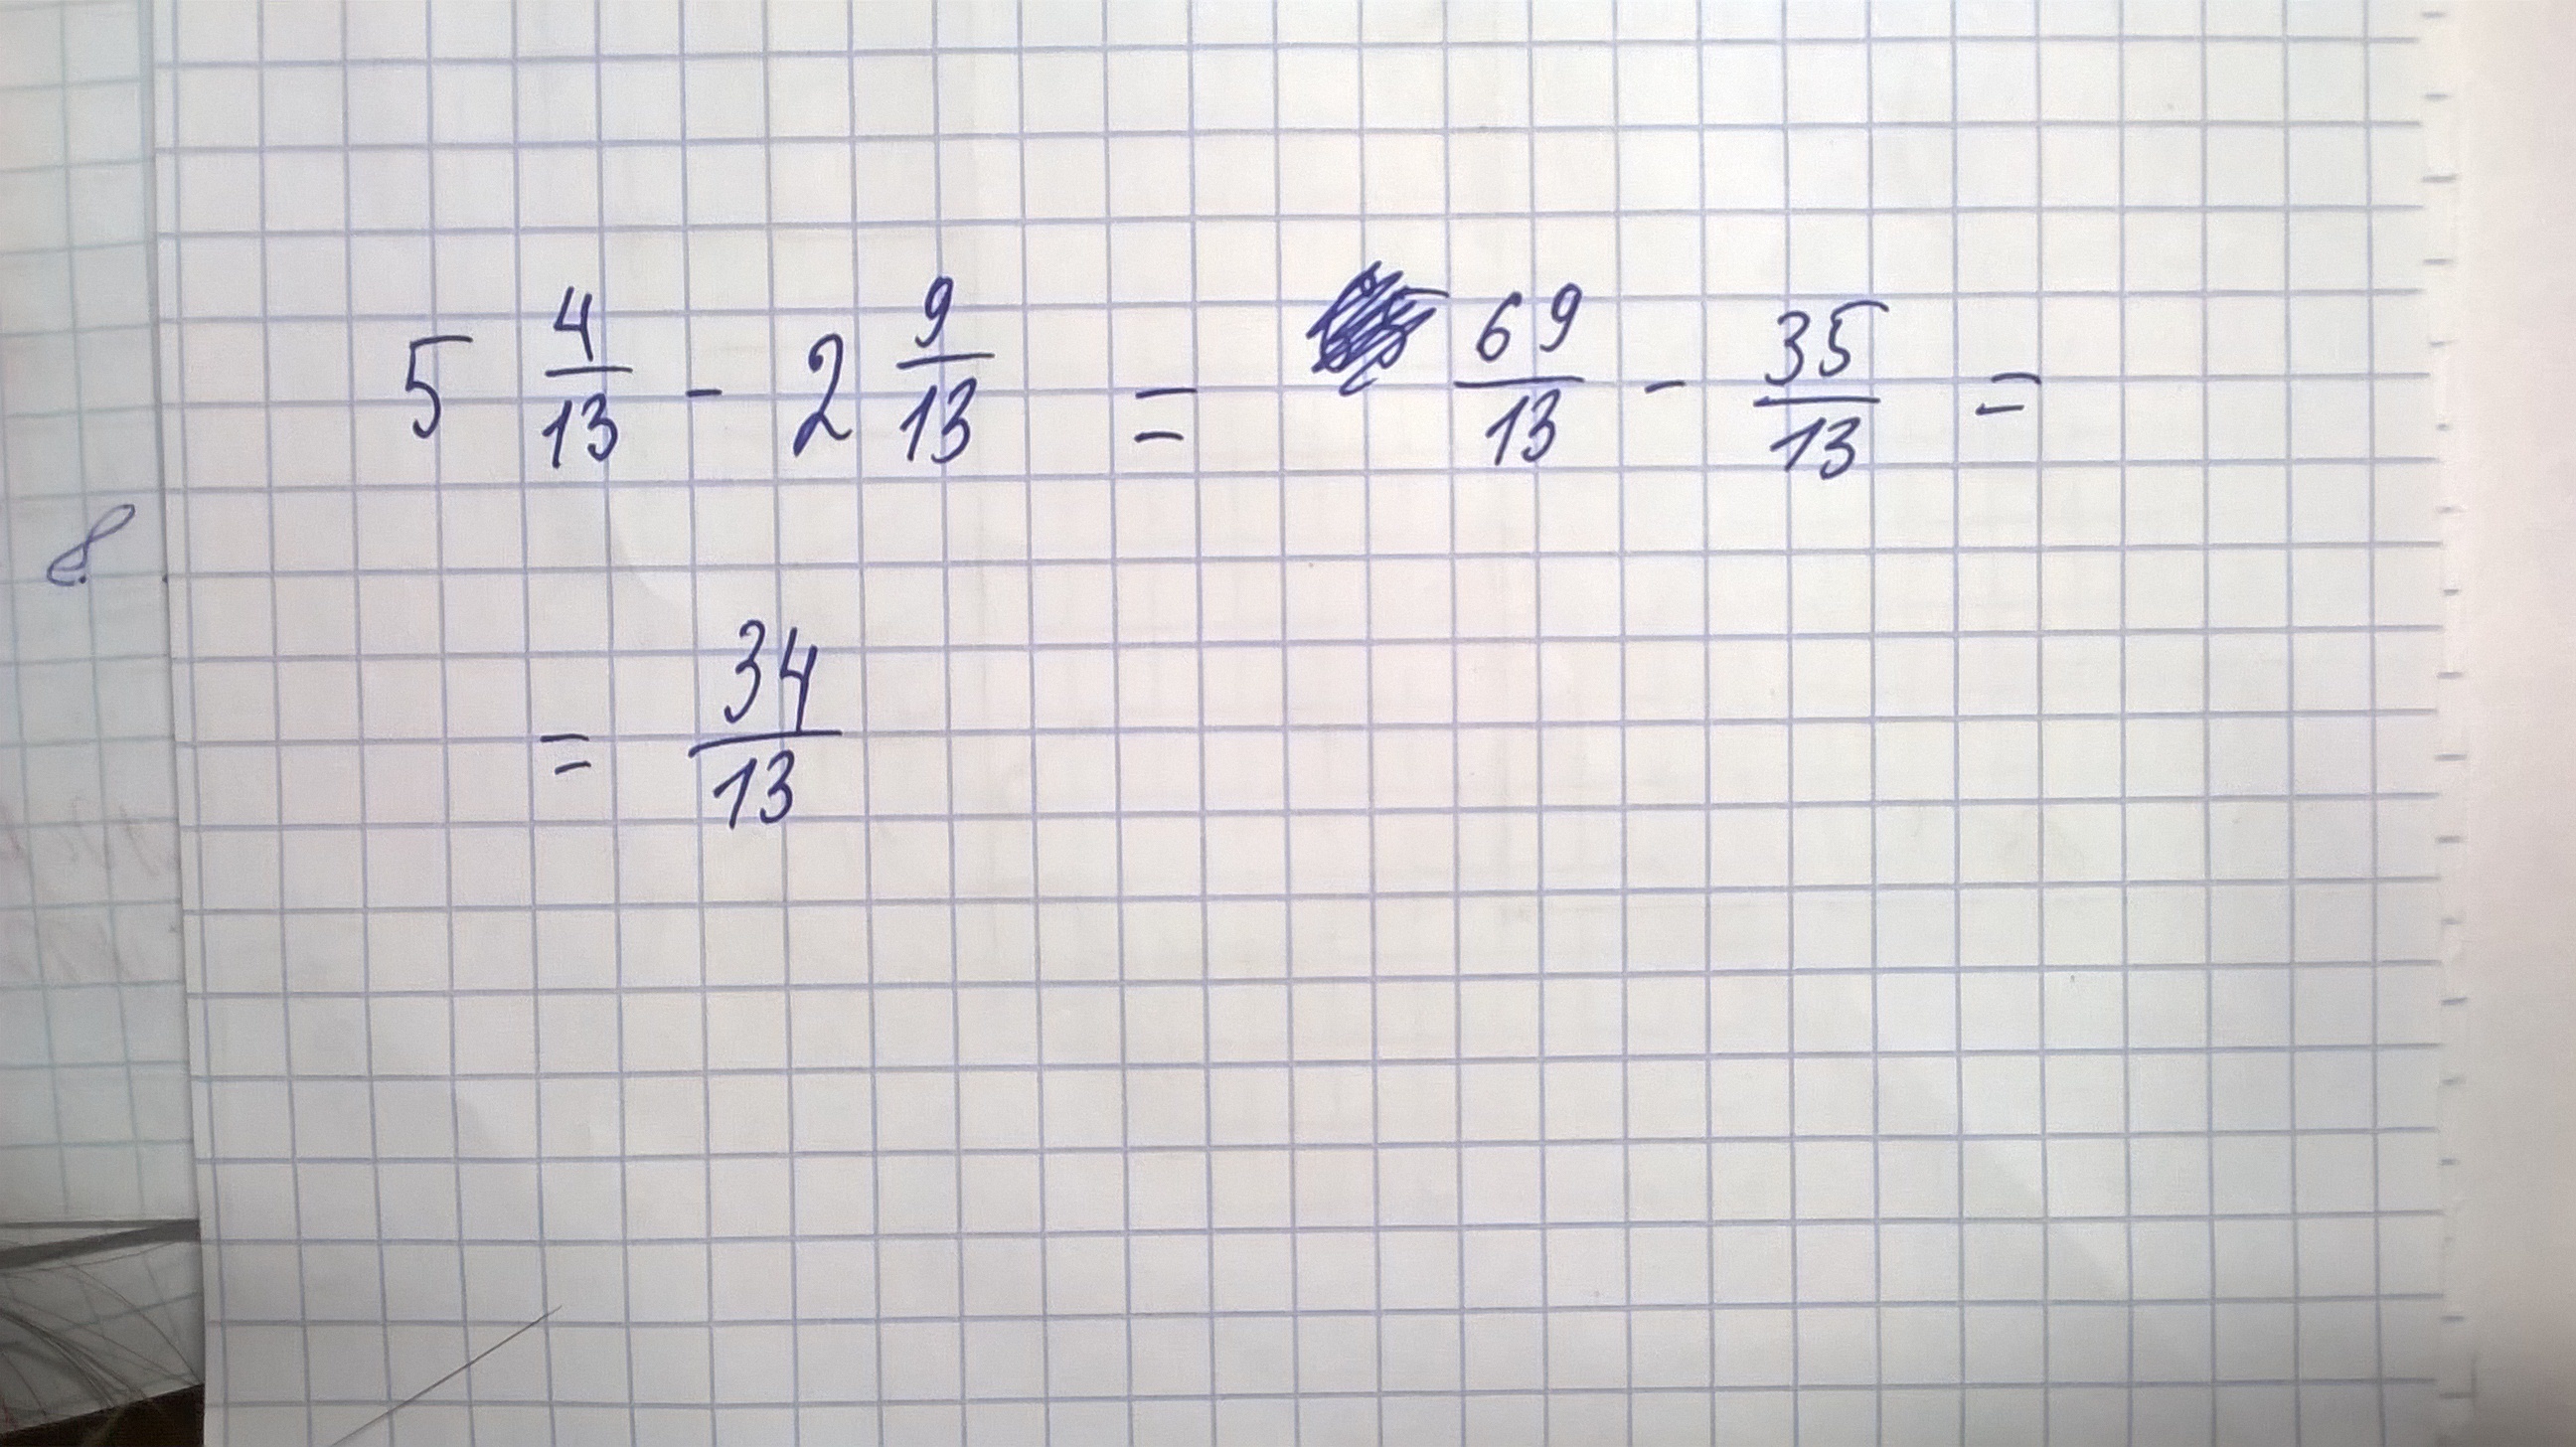 5 4/13 - 2 9/13 = 69/13 - 35/13 =
= 34/13
8.